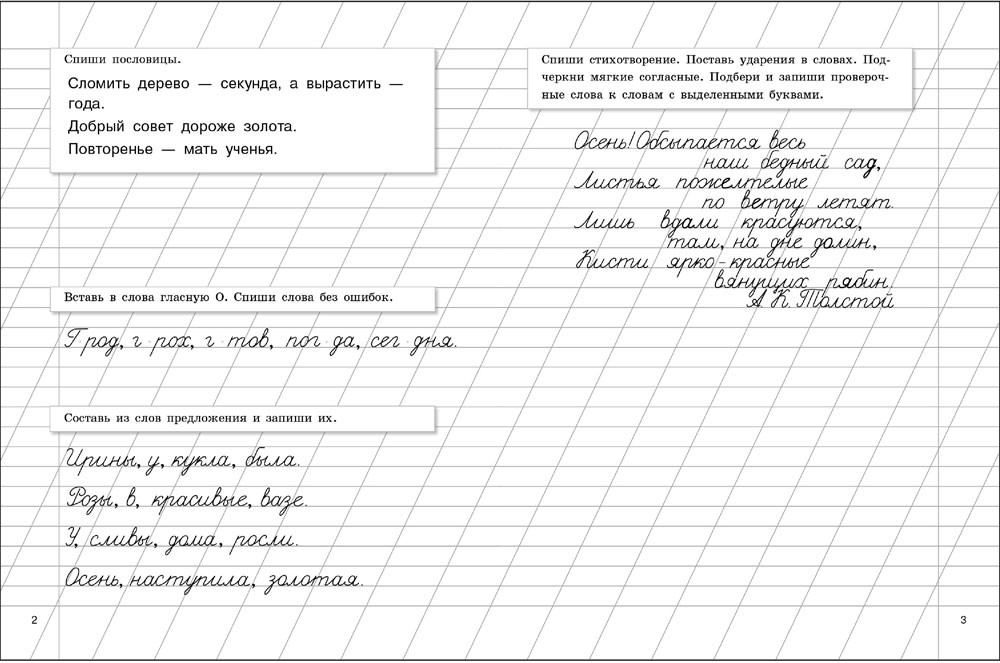 Спиши пословицы.
Сломить дерево — секунда, а вырастить —
года.
Добрый совет дороже золота.
Повторенье — мать ученья.
Вставь в слова гласную О. Спиши слова без ошибок.
Г·род, г·рох, г·тов, пог·да, сег·дня.
Составь из слов предложения и запиши их.
Ирины, у, кукла, была.
Розы, в, красивые, вазе.
У, сливы, дома, росли.
Осень, наступила, золотая.
2
Спиши стихотворение. Поставь ударения в словах. Под-
черкни мягкие согласные. Подбери и запиши провероч-
ные слова к словам с выделенными буквами.
Осень! Обсыпается весь
наш бедный сад,
Листья пожелтелые
по ветру летят.
Лишь вдали красуются,
там, на дне долин,
Кисти ярко-красные
вянущих рябин.
А. К. Толстой
3